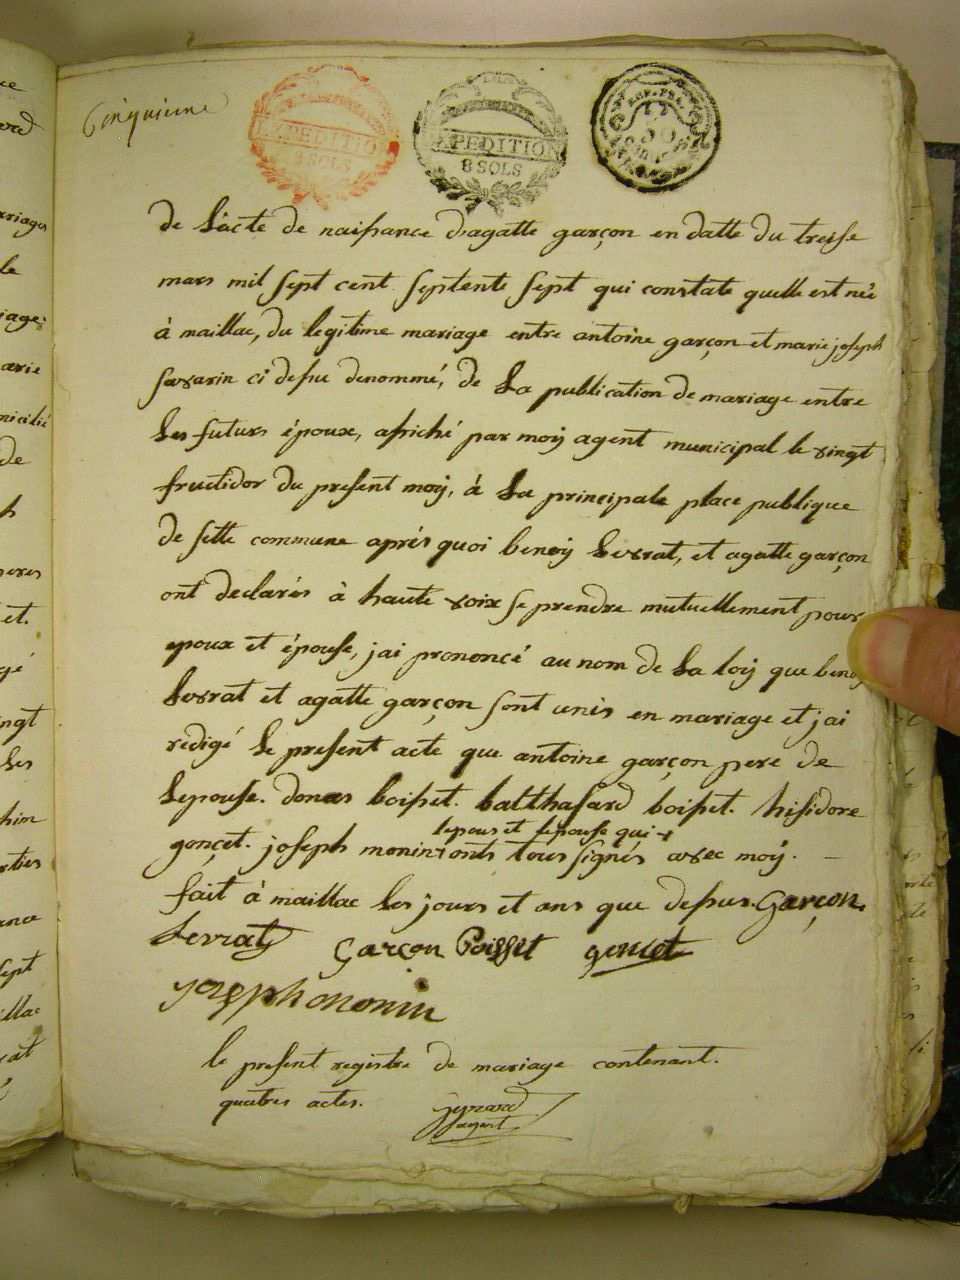 Cinquieme
EXPEDITION
8 SOLS
EXPEDITION
8 SOLS
REP. FRA.
50
de l'acte de naissance d'agatte garçon en datte du treise
mars mil sept cent septente sept qui constate quelle est née
à maillac, du legitime mariage entre antoine garçon et marie joseph
savarin ci depu denommé, de la publication de mariage entre
les futurs époux, afiché par moy agent municipal le vingt
fructidor du present moy, à la principale place publique
de sette commune après quoi benoy levrat, et agatte garçon
ont declarés à haute voix se prendre mutuellement pour
epoux et épouse, jai prononcé au nom de la loy que benoy
levrat et agatte garçon sont unis en mariage et jai
redigé le present acte que antoine garçon pere de
lepouse. donas boisset. balthasard boisset. hisidore
lepous et lepouse qui
gonçet. joseph monin onts tous signés avec moy.
fait à maillac les jours et ans que depus. garçon.
Levrat garçon Boisset goncet
joseph monin
le present registre de mariage contenant.
quatres actes.
agent